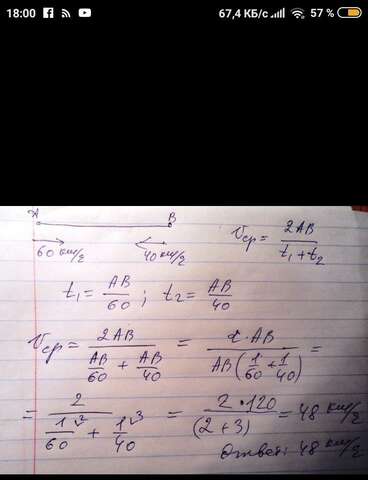 18:00 67,4 КБ/с 57 %
A B
60 км/ч 40 км/ч Vср = 2AB / t₁ + t₂
t₁ = AB/60 ; t₂ = AB/40
Vср = 2AB / (AB/60 + AB/40) = 2·AB / AB(1/60 + 1/40) =
= 2 / (1/60 \2 + 1/40 \3) = 2·120 / (2+3) = 48 км/ч
Ответ: 48 км/ч